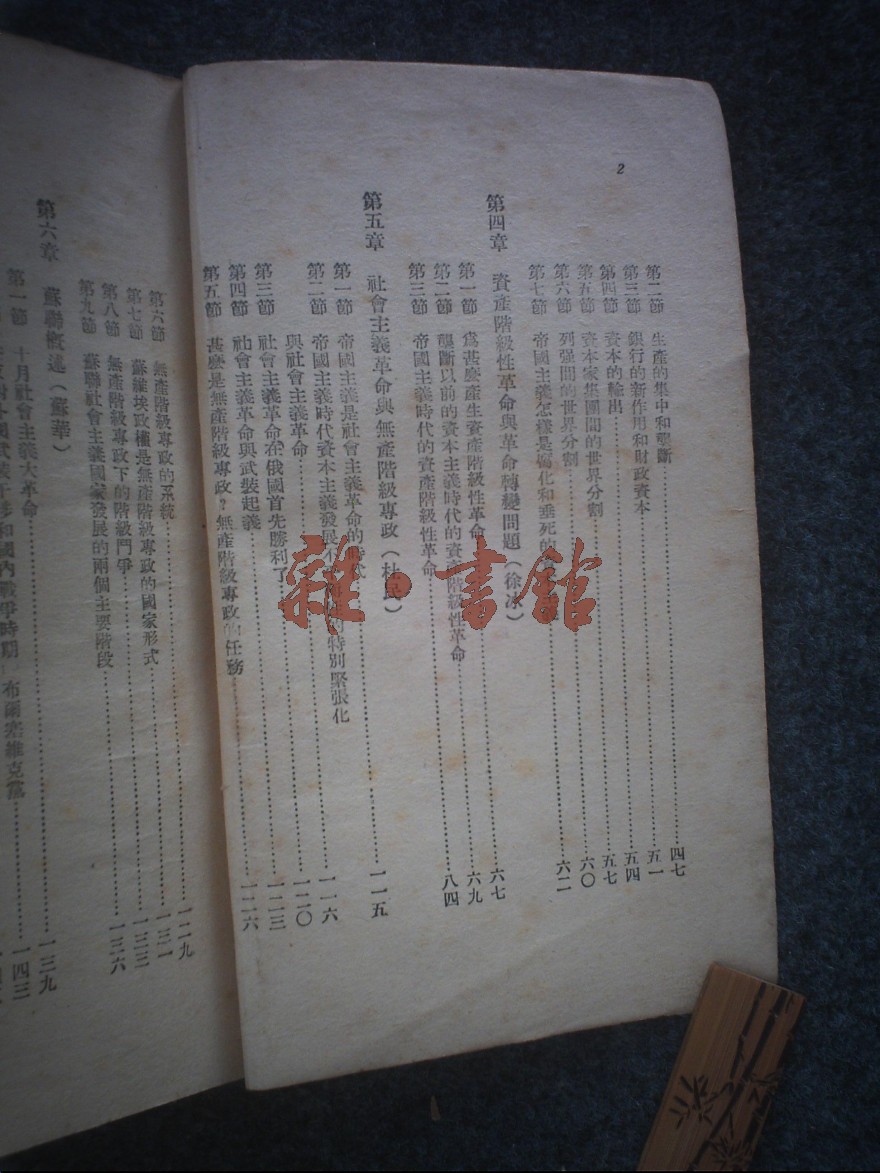 2
第二節 生產的集中和壟斷……四七
第三節 銀行的新作用和財政資本……五一
第四節 資本的輸出……五四
第五節 資本家集團間的世界分割……五七
第六節 列强間的世界分割……六〇
第七節 帝國主義怎樣是腐化和垂死的……六二
第四章 資產階級性革命與革命轉變問題(徐冰)
第一節 爲甚麼產生資產階級性革命……六七
第二節 壟斷以前的資本主義時代的資產階級性革命……六九
第三節 帝國主義時代的資產階級性革命……八四
第五章 社會主義革命與無產階級專政(杜民)
第一節 帝國主義是社會主義革命的時代……一一五
第二節 帝國主義時代資本主義發展不特別緊張化
與社會主義革命……一一六
第三節 社會主義革命在俄國首先勝利了……一二〇
第四節 社會主義革命與武裝起義……一二三
第五節 甚麼是無產階級專政?無產階級專政的任務……一二六
第六節 無產階級專政的系統……一二九
第七節 蘇維埃政權是無產階級專政的國家形式……一三一
第八節 無產階級專政下的階級鬥爭……一三三
第九節 蘇聯社會主義國家發展的兩個主要階段……一三六
第六章 蘇聯概述(蘇華)
第一節 十月社會主義大革命……一三九
和國內戰爭時期 布爾塞維克黨……一四三
雜·書館